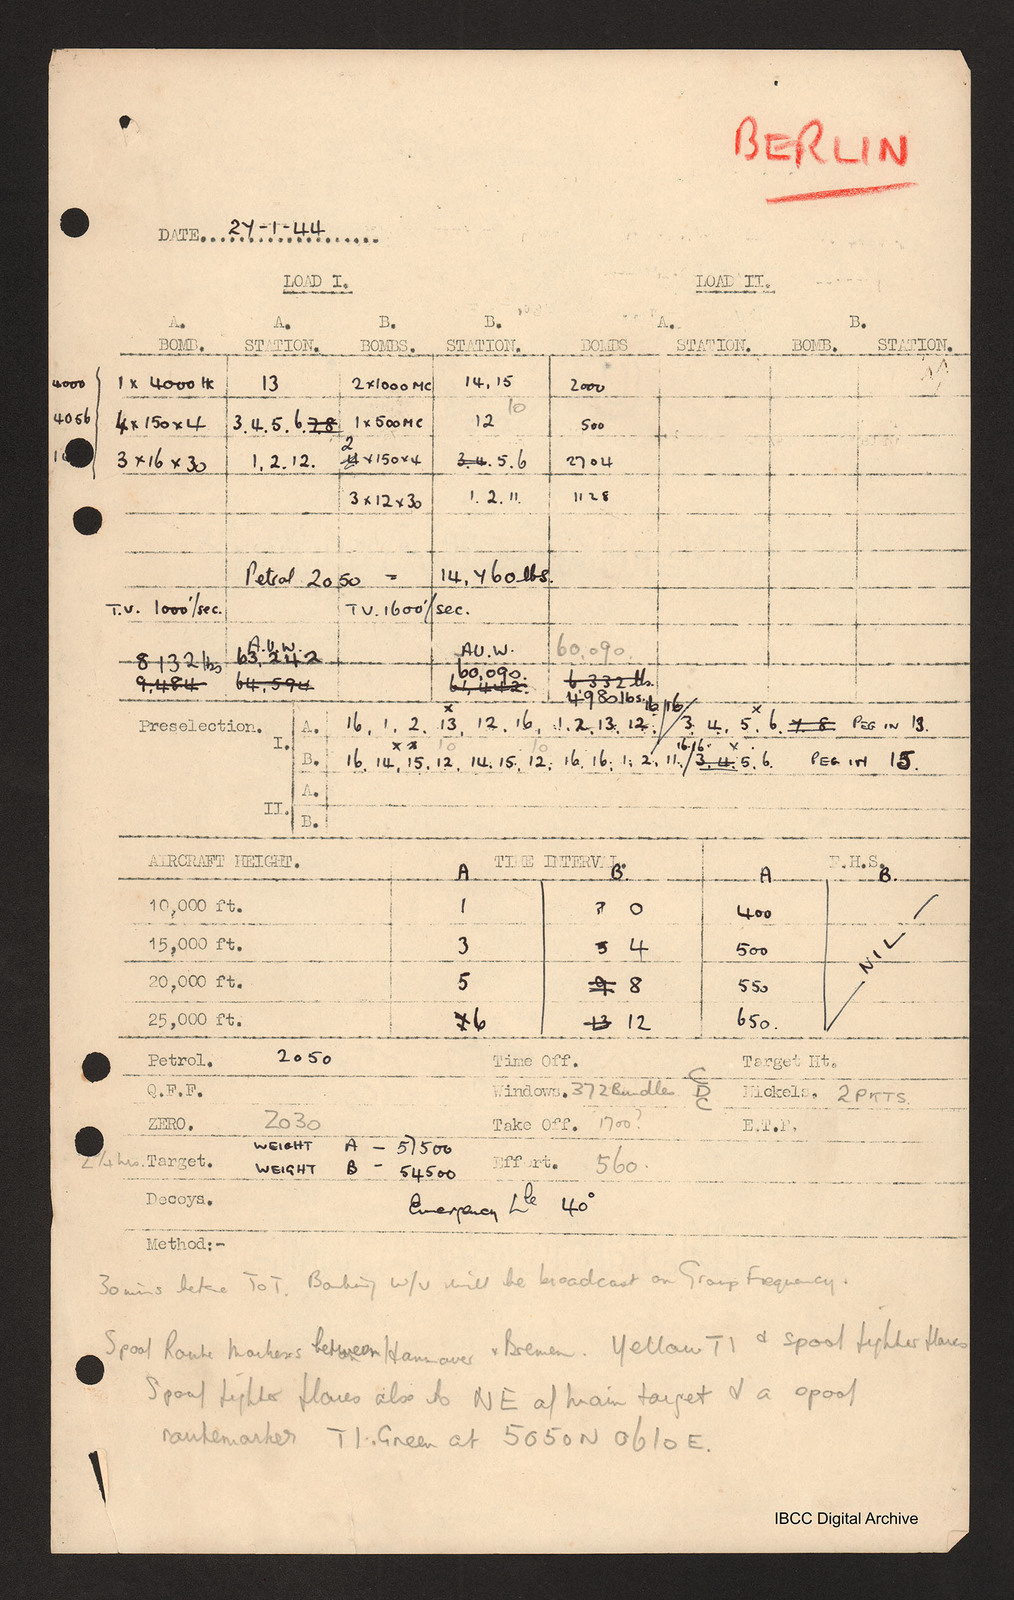 BERLIN
DATE 27-1-44
LOAD I. LOAD II.
A. A. B. B. A. B.
BOMB. STATION. BOMBS. STATION. BOMBS STATION. BOMB. STATION.
4000 1 x 4000 HC 13 2 x 1000 MC 14, 15 2000
4056 4 x 150 x 4 3. 4. 5. 6. 7 8 1 x 500 MC 12 10 500
3 x 16 x 30 1. 2. 12. 2 x 150 x 4 3. 4. 5. 6 2704
3 x 12 x 30 1. 2. 11. 1128
Petrol 2050 = 14,760 lbs.
T.V. 1000'/sec. T.V. 1600'/sec.
A.U.W. AU.W. 60,090.
8132 lbs 63,242 60,090.
9,484 64,594 61,442. 6332 lb.
4980 lbs.
Preselection. I. A. 16, 1, 2, 13, 12, 16, 1. 2. 13. 12. 16/16/ 3. 4. 5. 6. 7. 8 PEG IN 13.
B. 16. 14. 15. 12. 14. 15. 12. 16. 16. 1. 2. 11. 16 16. / 3. 4. 5. 6. PEG IN 15.
II. A.
B.
AIRCRAFT HEIGHT. TIME INTERVAL. F.H.S.
A B. A B.
10,000 ft. 1 7 0 400
15,000 ft. 3 5 4 500 NIL
20,000 ft. 5 9 8 550
25,000 ft. 7 6 13 12 650.
Petrol. 2050 Time Off. Target Ht.
Q.F.F. Windows. 372 Bundles C D C Nickels. 2 PKTS.
ZERO. 2030 Take Off. 1700? E.T.R.
2 1/4 hrs. Target. WEIGHT A - 57500 Effort. 560.
WEIGHT B - 54500
Decoys. Emergency Lle 40°
Method:-
30 mins before ToT. Bombing w/v will be broadcast on Group Frequency.
Spoof Route Markers between Hannover & Bremen. Yellow TI & spoof fighter flares
Spoof fighter flares also to NE of main target & a spoof
routemarker TI. Green at 5050N 0610E.
IBCC Digital Archive